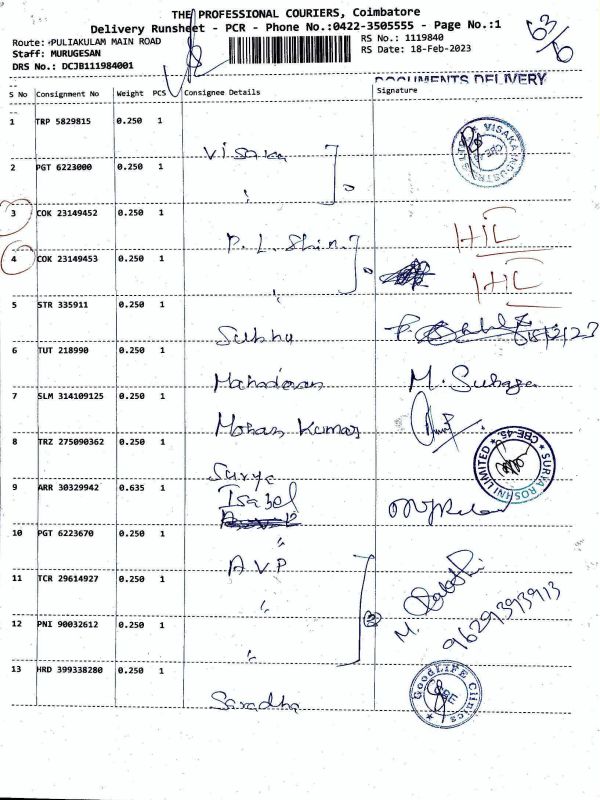 THE PROFESSIONAL COURIERS, Coimbatore
Delivery Runsheet - PCR - Phone No.:0422-3505555 - Page No.:1
63/6
Route: PULIAKULAM MAIN ROAD
RS No.: 1119840
Staff: MURUGESAN
RS Date: 18-Feb-2023
DRS No.: DCJB111984001
DOCUMENTS DELIVERY
S No Consignment No Weight PCS Consignee Details Signature
1 TRP 5829815 0.250 1 Visaka
VISAKA INDUSTRIES LTD
2 PGT 6223000 0.250 1 "
3 COK 23149452 0.250 1 P. L. Shim HIL
4 COK 23149453 0.250 1 " HIL
5 STR 335911 0.250 1 Subhu 18/2/23
6 TUT 218990 0.250 1 Mahadevan M. Suhaga
7 SLM 314109125 0.250 1 Mohan Kumar
8 TRZ 275090362 0.250 1 Surya
SURYA ROSHNI LIMITED CBE-45
9 ARR 30329942 0.635 1 Isabel
10 PGT 6223670 0.250 1 "
A.V.P
11 TCR 29614927 0.250 1 "
12 PNI 90032612 0.250 1 " 3
M.
9629393913
13 HRD 399338280 0.250 1 Saradha
GoodLIFE Clinics CBE